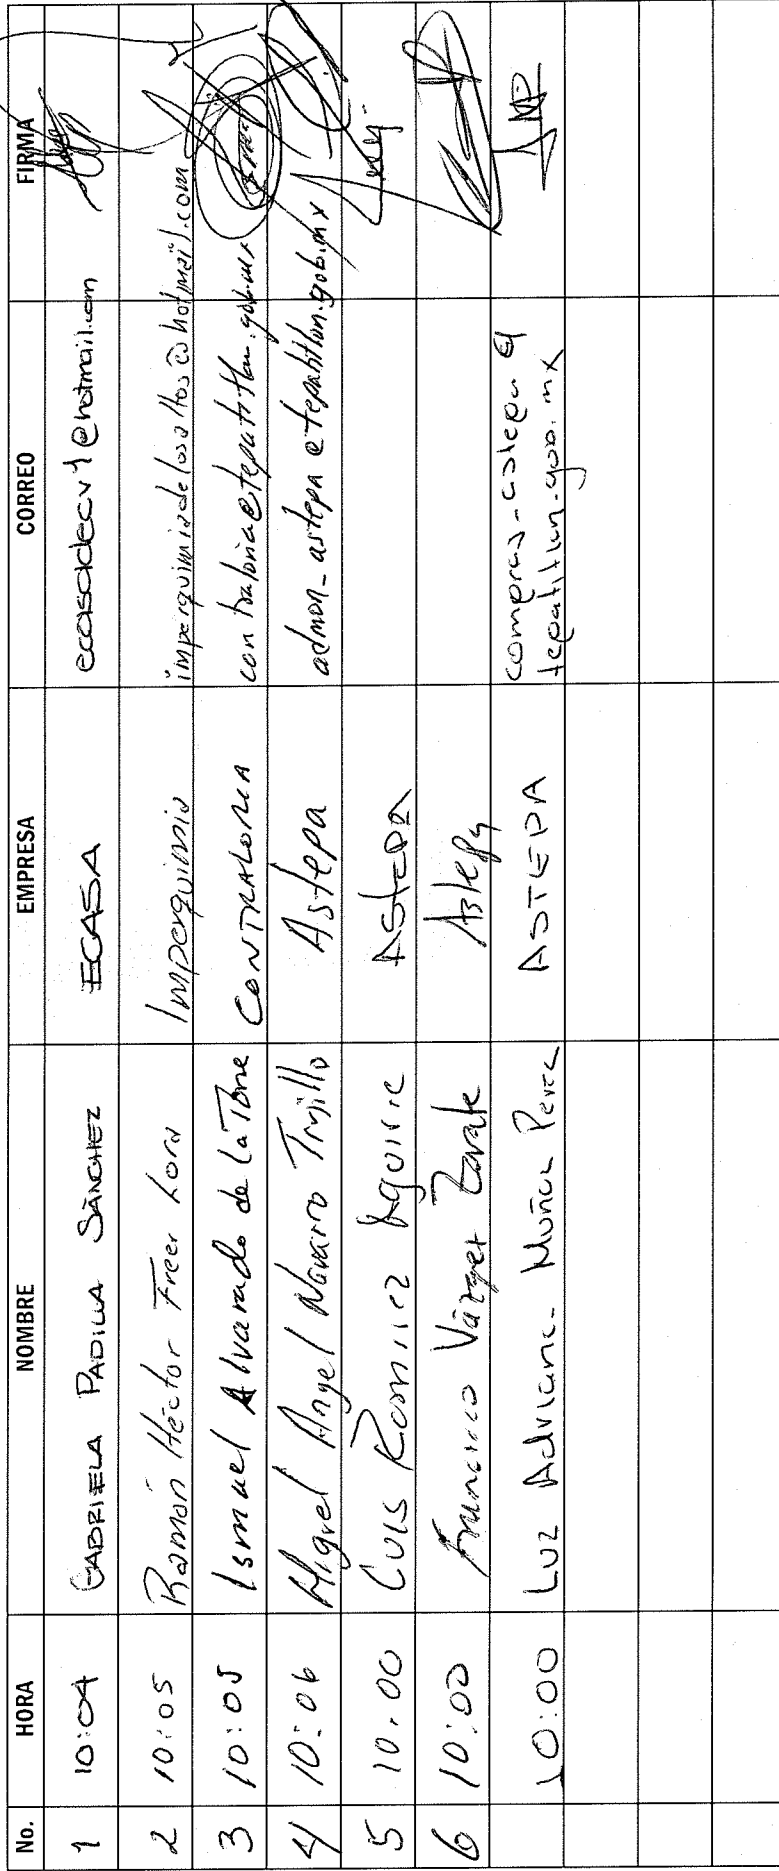 No. HORA NOMBRE EMPRESA CORREO FIRMA
1 10:04 GABRIELA PADILLA SÁNCHEZ ECASA ecasadecv1@hotmail.com
2 10:05 Ramón Héctor Freer Lora Imperquimia imperquimiadelosaltos@hotmail.com
3 10:05 Ismael Alvarado de la Torre CONTRALORIA contraloria@tepatitlan.gob.mx
4 10:06 Miguel Angel Navarro Trujillo Astepa admon_astepa@tepatitlan.gob.mx
5 10:00 Luis Ramirez Aguirre ASTEPA
6 10:00 Francisco Vázquez Zarate Astepa
10:00 Luz Adriana Muñoz Perez ASTEPA compras-astepa@
tepatitlan.gob.mx